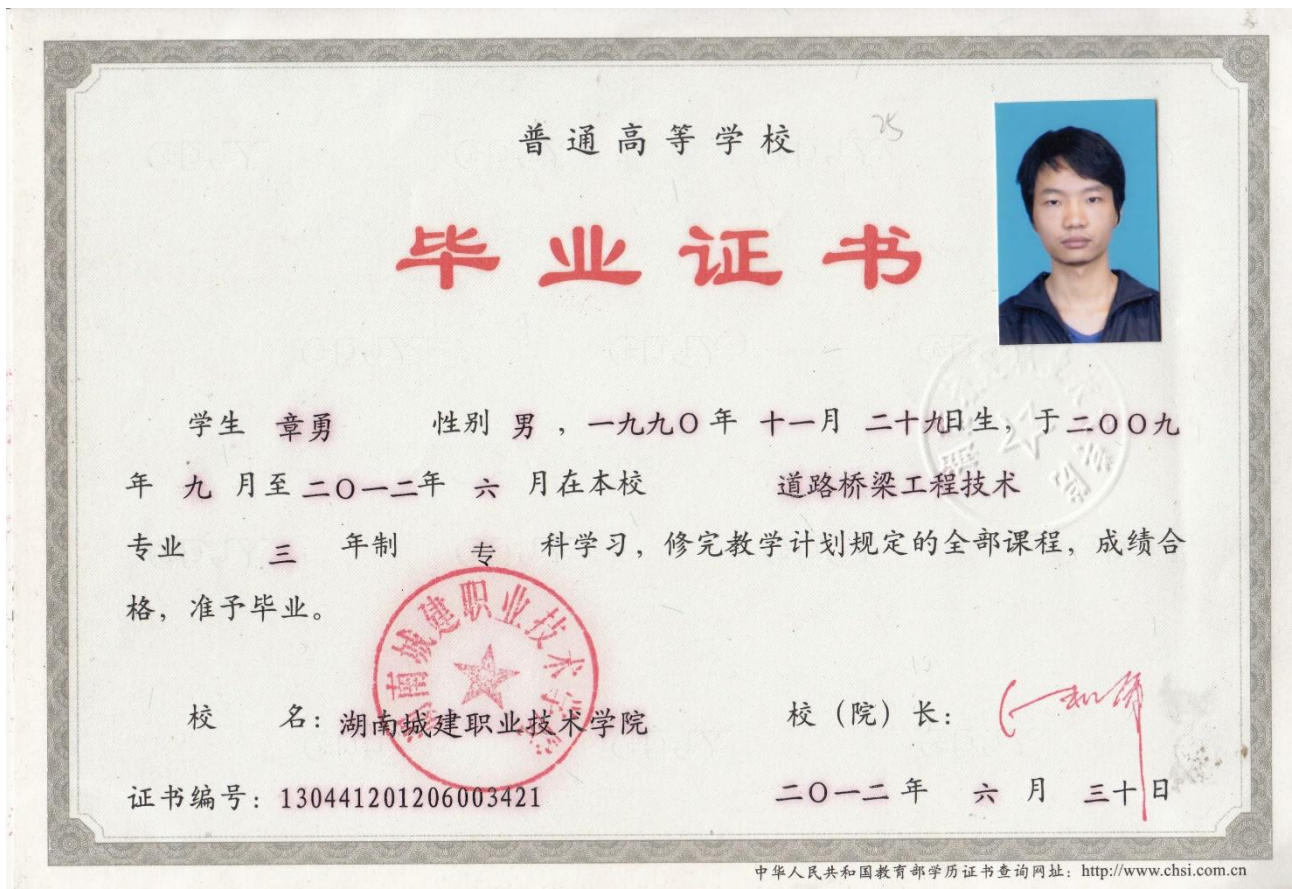 普通高等学校
25
毕业证书
学生 章勇 性别 男 ，一九九〇年 十一月 二十九日生，于二〇〇九
年 九 月至二〇一二年 六 月在本校 道路桥梁工程技术
专业 三 年制 专 科学习，修完教学计划规定的全部课程，成绩合
格，准予毕业。
湖南城建职业技术学院
校 名：湖南城建职业技术学院 校（院）长：
证书编号：130441201206003421 二〇一二年 六 月 三十日
中华人民共和国教育部学历证书查询网址：http://www.chsi.com.cn